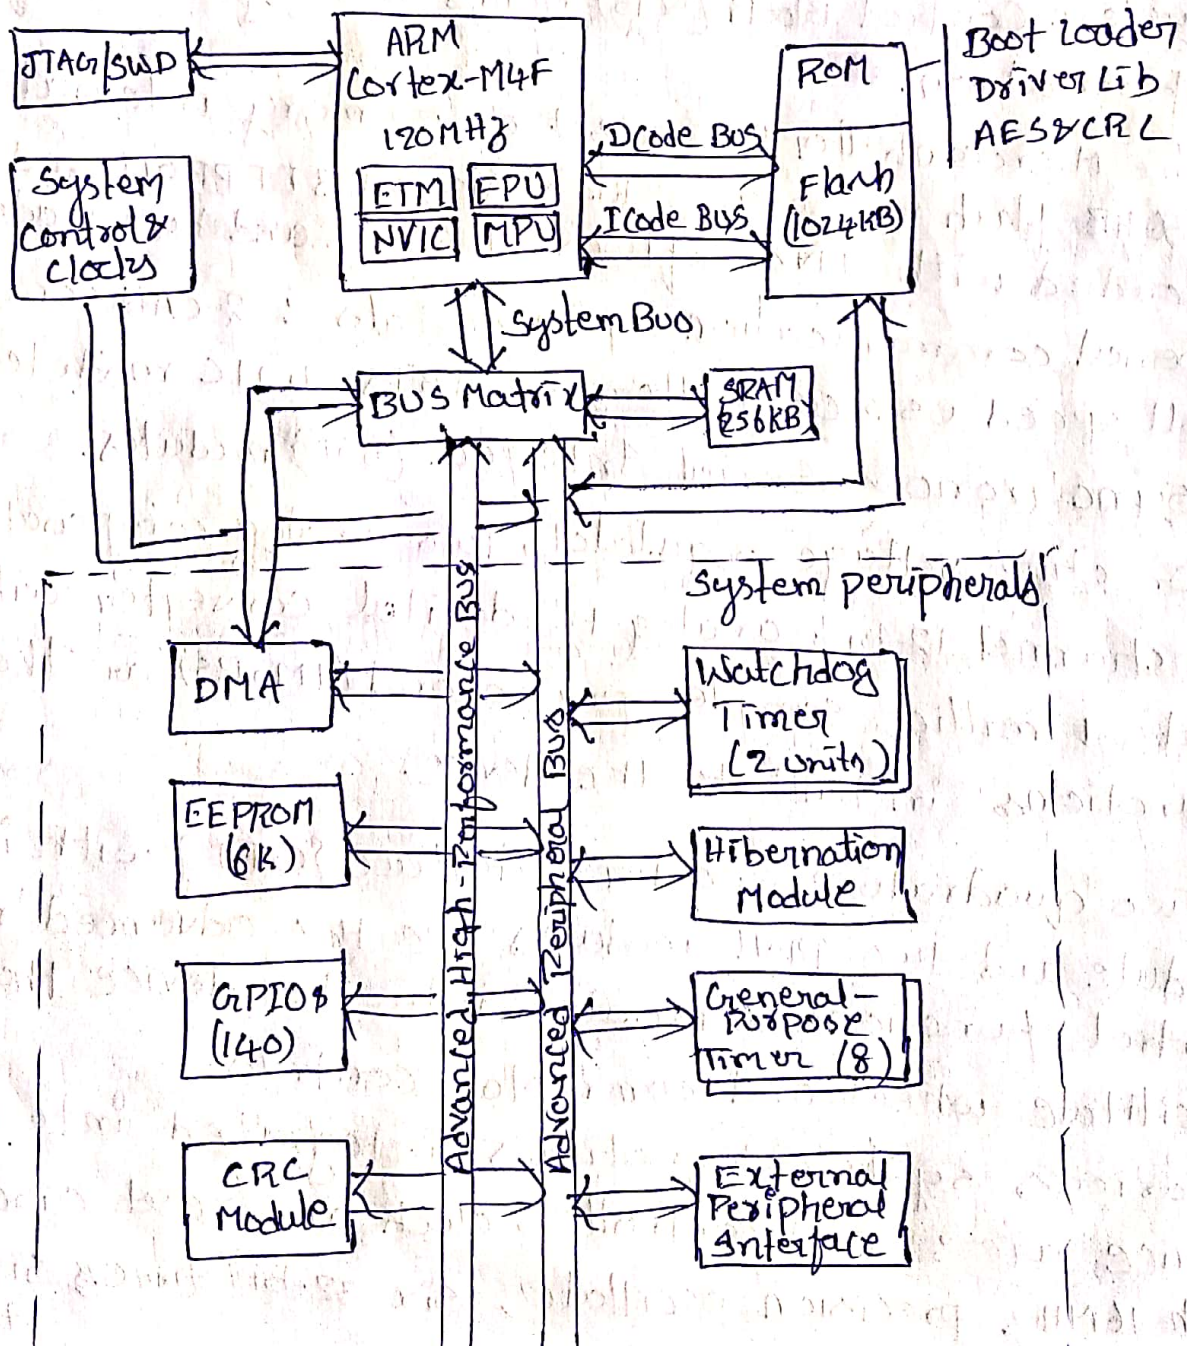 JTAG/SWD
ARM
Cortex-M4F
120MHz
ETM
FPU
NVIC
MPU
System
Control &
Clocks
DCode Bus
ICode Bus
ROM
Flash
(1024KB)
Boot Loader
Driver Lib
AES & CRC
System Bus
BUS Matrix
SRAM
(256KB)
System peripherals
DMA
EEPROM
(6K)
GPIOs
(140)
CRC
Module
Advanced High-Performance Bus
Advanced Peripheral Bus
Watchdog
Timer
(2 units)
Hibernation
Module
General-
Purpose
Timer (8)
External
Peripheral
Interface